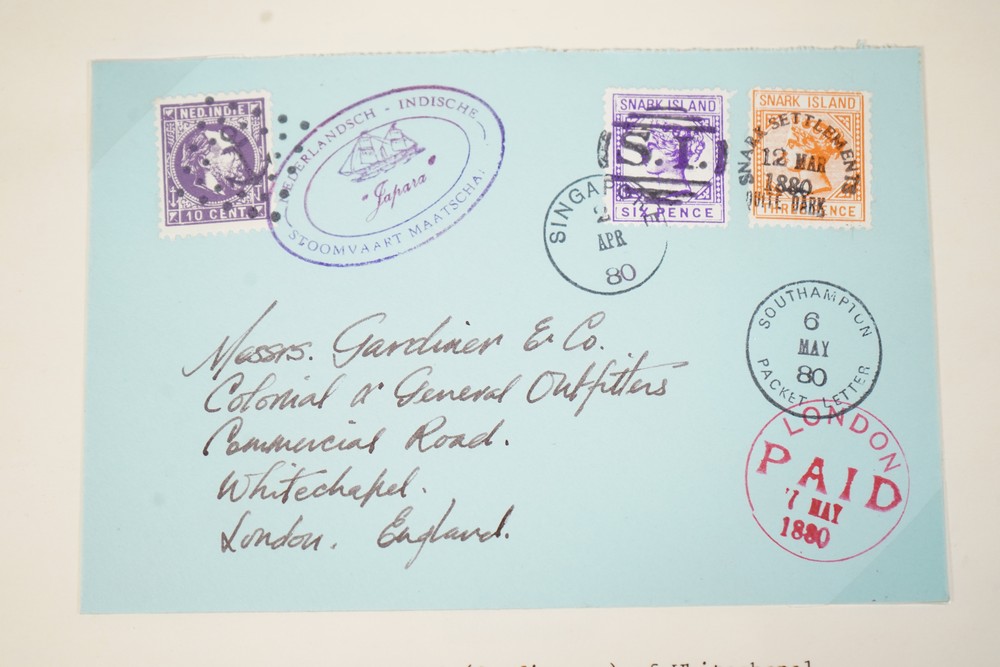 NED. INDIE
10 CENT
NEDERLANDSCH - INDISCHE
Japara
STOOMVAART MAATSCHAPPIJ
SNARK ISLAND
S.I.
SIX PENCE
SNARK ISLAND
THREE PENCE
SNARK SETTLEMENTS
12 MAR
1880
QUITE DARK
SINGAPORE
2
APR
80
SOUTHAMPTON
6
MAY
80
PACKET LETTER
LONDON
PAID
7 MAY
1880
Messrs. Gardiner & Co.
Colonial & General Outfitters
Commercial Road.
Whitechapel.
London. England.
of Whitechapel